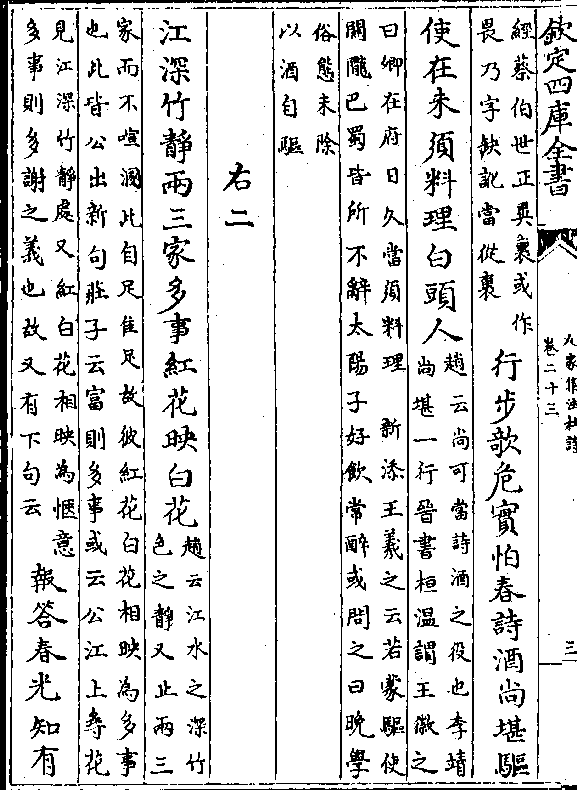 欽定四庫全書
九家集注杜詩
卷二十三
三
經蔡伯世正異裹或作
畏乃字缺訛當從裹
行步欹危實怕春詩酒尚堪驅
使在未須料理白頭人
趙云尚可當詩酒之役也李靖
尚堪一行晉書桓温謂王徽之
曰卿在府日久當須料理 新添王羲之云若蒙驅使
關隴巴蜀皆所不辭太陽子好飲常醉或問之曰晚學
俗態未除
以酒自驅
右二
江深竹靜兩三家多事紅花映白花
趙云江水之深竹
色之靜又止兩三
家而不喧溷此自足佳足故彼紅花白花相映為多事
也此皆公出新句莊子云富則多事或云公江上尋花
見江深竹靜處又紅白花相映為愜意
多事則多謝之義也故又有下句云
報答春光知有